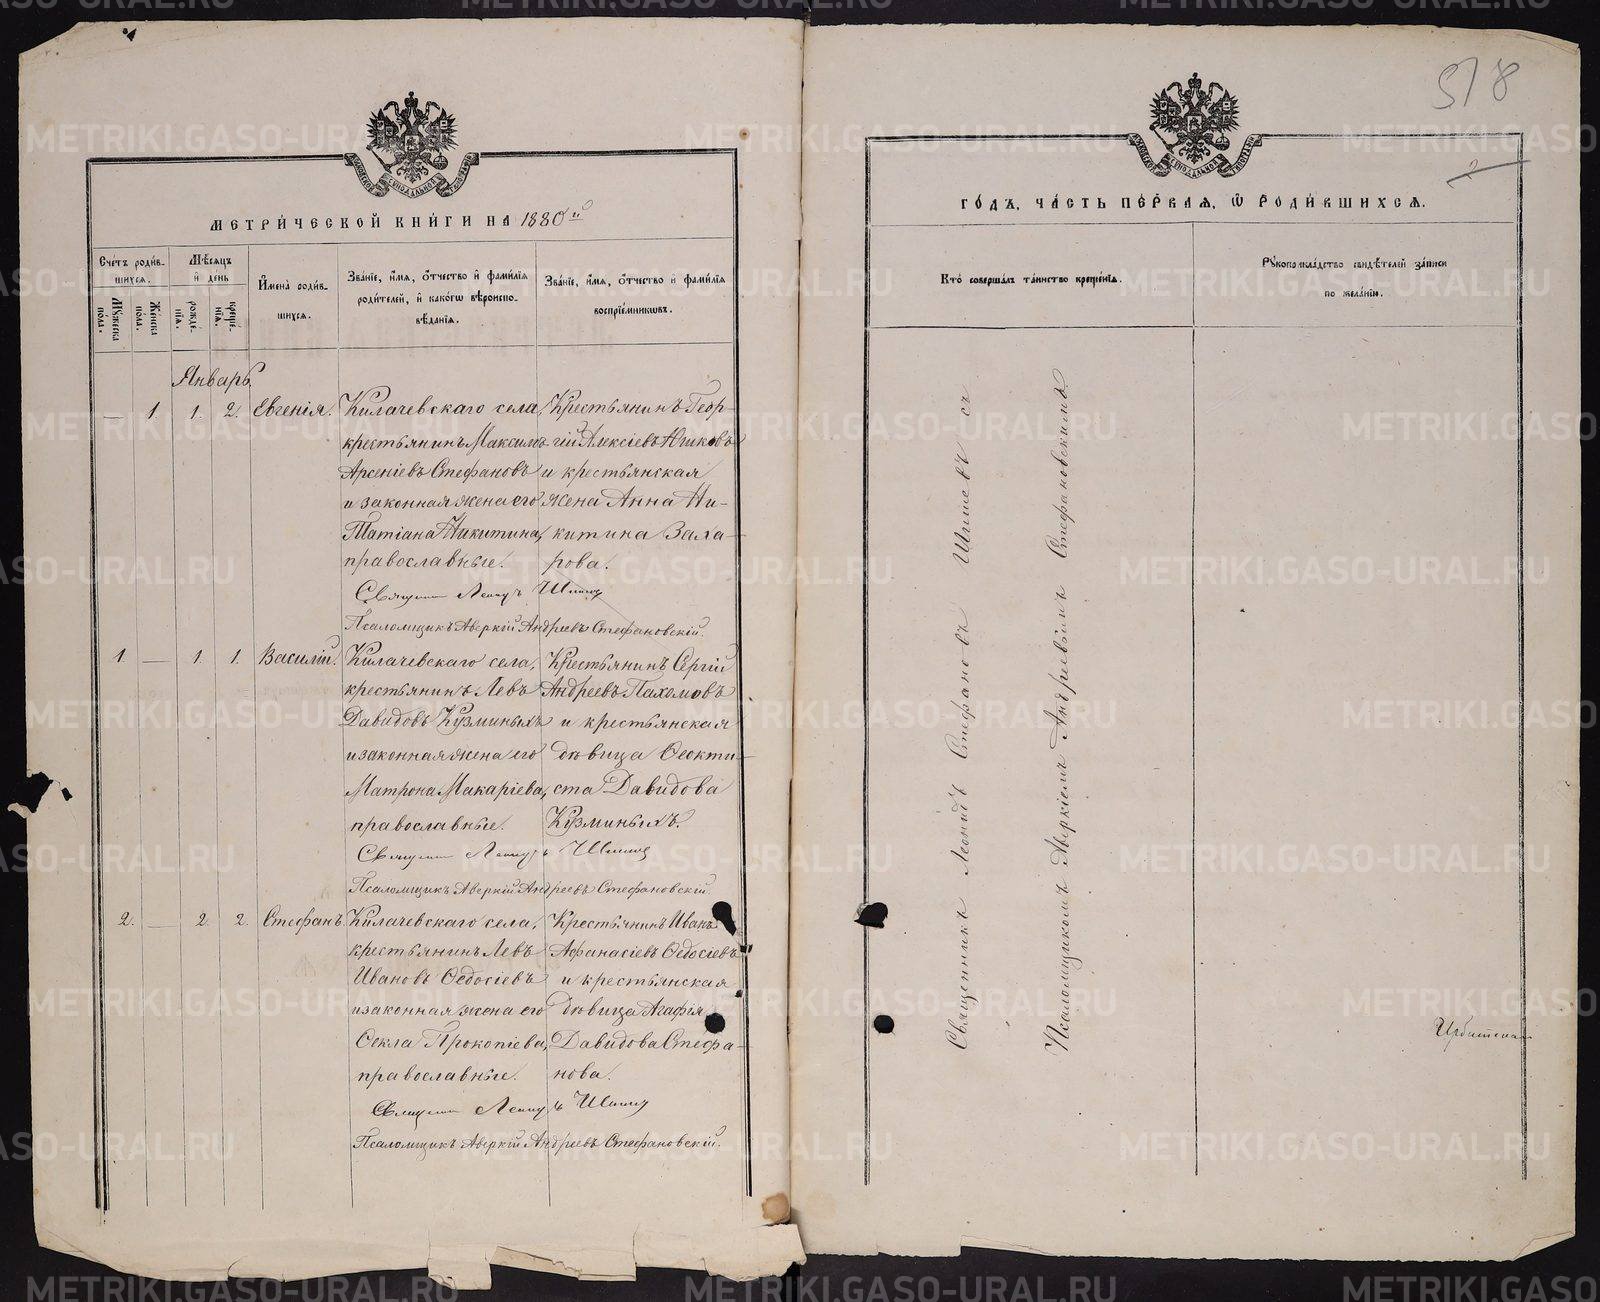 МЕТРИ́ЧЕСКОЙ КНИ́ГИ НА 1880й
Сче́тъ роди́в-
шихся.
Му́жеска по́ла.
Же́нска по́ла.
Мѣ́сяцъ
и҆ де́нь
рожде́-
нїя.
креще́-
нїя.
И҆мена̀ роди́в-
шихся.
Зва́нїе, и҆́мя, ѻ҆́тчество и҆ фами́лїя
роди́телей, и҆ како́гѡ вѣроиспо-
вѣ́данїя.
Зва́нїе, и҆́мя, ѻ҆́тчество и҆ фами́лїя
воспрїе́мникѡвъ.
Январь.
— 1. 1. 2. Евгенія.
Килачевскаго села,
крестьянинъ Максимъ
Арсеніевъ Стефановъ
и законная жена его
Татіана Никитина,
православные.
Крестьянинъ Геор-
гій Алексіевъ Юшковъ
и крестьянская
жена Анна Ни-
китина Заха-
рова.
Псаломщикъ Аверкій Андреевъ Стефановскій.
1. — 1. 1. Василій.
Килачевскаго села,
крестьянинъ Левъ
Давидовъ Кузминыхъ
и законная жена его
Матрона Макаріева,
православные.
Крестьянинъ Сергій
Андреевъ Пахомовъ
и крестьянская
дѣвица Ѳеокти-
ста Давидова
Кузминыхъ.
Псаломщикъ Аверкій Андреевъ Стефановскій.
2. — 2. 2. Стефанъ.
Килачевскаго села,
крестьянинъ Левъ
Ивановъ Ѳедосіевъ
и законная жена его
Ѳекла Прокопіева,
православные.
Крестьянинъ Иванъ
Афанасіевъ Ѳедосіевъ
и крестьянская
дѣвица Агафія
Давидова Стефа-
нова.
Псаломщикъ Аверкій Андреевъ Стефановскій.
518
2
ГО́ДЪ, ЧА́СТЬ ПЕ́РВАЯ, Ѡ҆ РОДИ́ВШИХСЯ.
Кто̀ соверша́лъ та́инство креще́нїя.
Рꙋкоприкла́дство свидѣ́телей за́писи
по жела́нїю.
Священникъ Леонидъ Стефановъ Шишевъ съ
Псаломщикомъ Аверкіемъ Андреевымъ Стефановскимъ.
METRIKI.GASO-URAL.RU